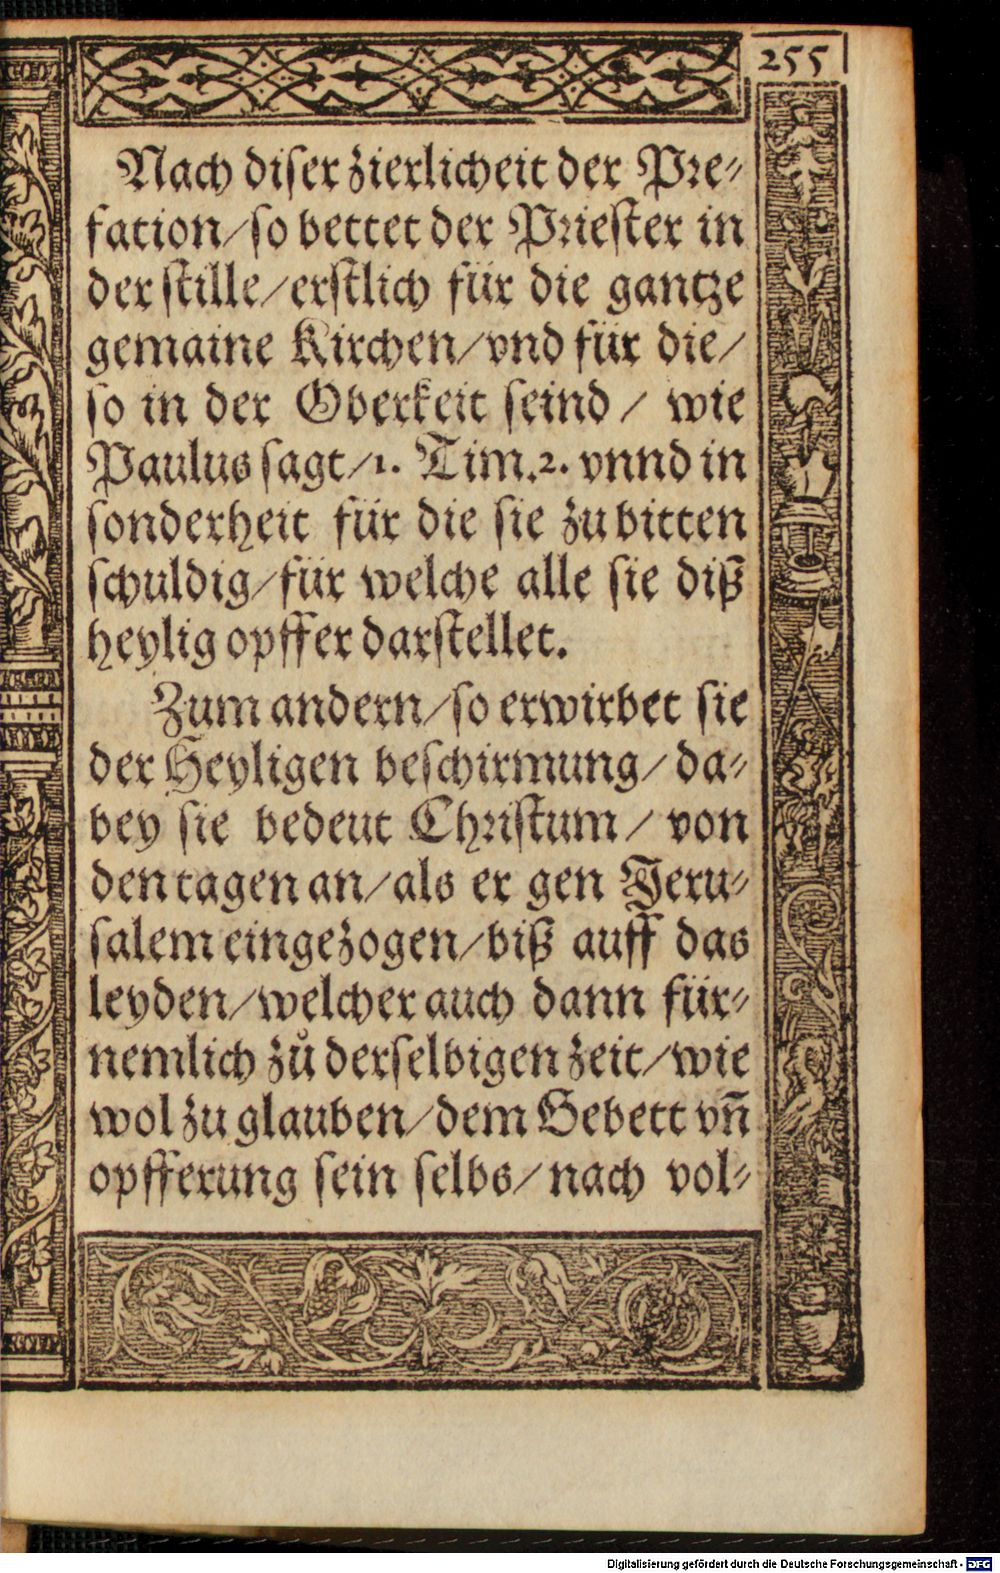 255
Nach diser zierlicheit der Pre⸗
fation/so bettet der Priester in
der stille/erstlich für die gantze
gemaine Kirchen/vnd für die/
so in der Oberkeit seind/ wie
Paulus sagt/1. Tim.2. vnnd in
sonderheit für die sie zu bitten
schuldig/für welche alle sie diß
heylig opffer darstellet.
Zum andern/so erwirbet sie
der Heyligen beschirmung/da⸗
bey sie bedeut Christum/ von
den tagen an/als er gen Jeru⸗
salem eingezogen/biß auff das
leyden/welcher auch dann für⸗
nemlich zů derselbigen zeit/wie
wol zu glauben/dem Gebett vñ
opfferung sein selbs/nach vol⸗
Digitalisierung gefördert durch die Deutsche Forschungsgemeinschaft - DFG